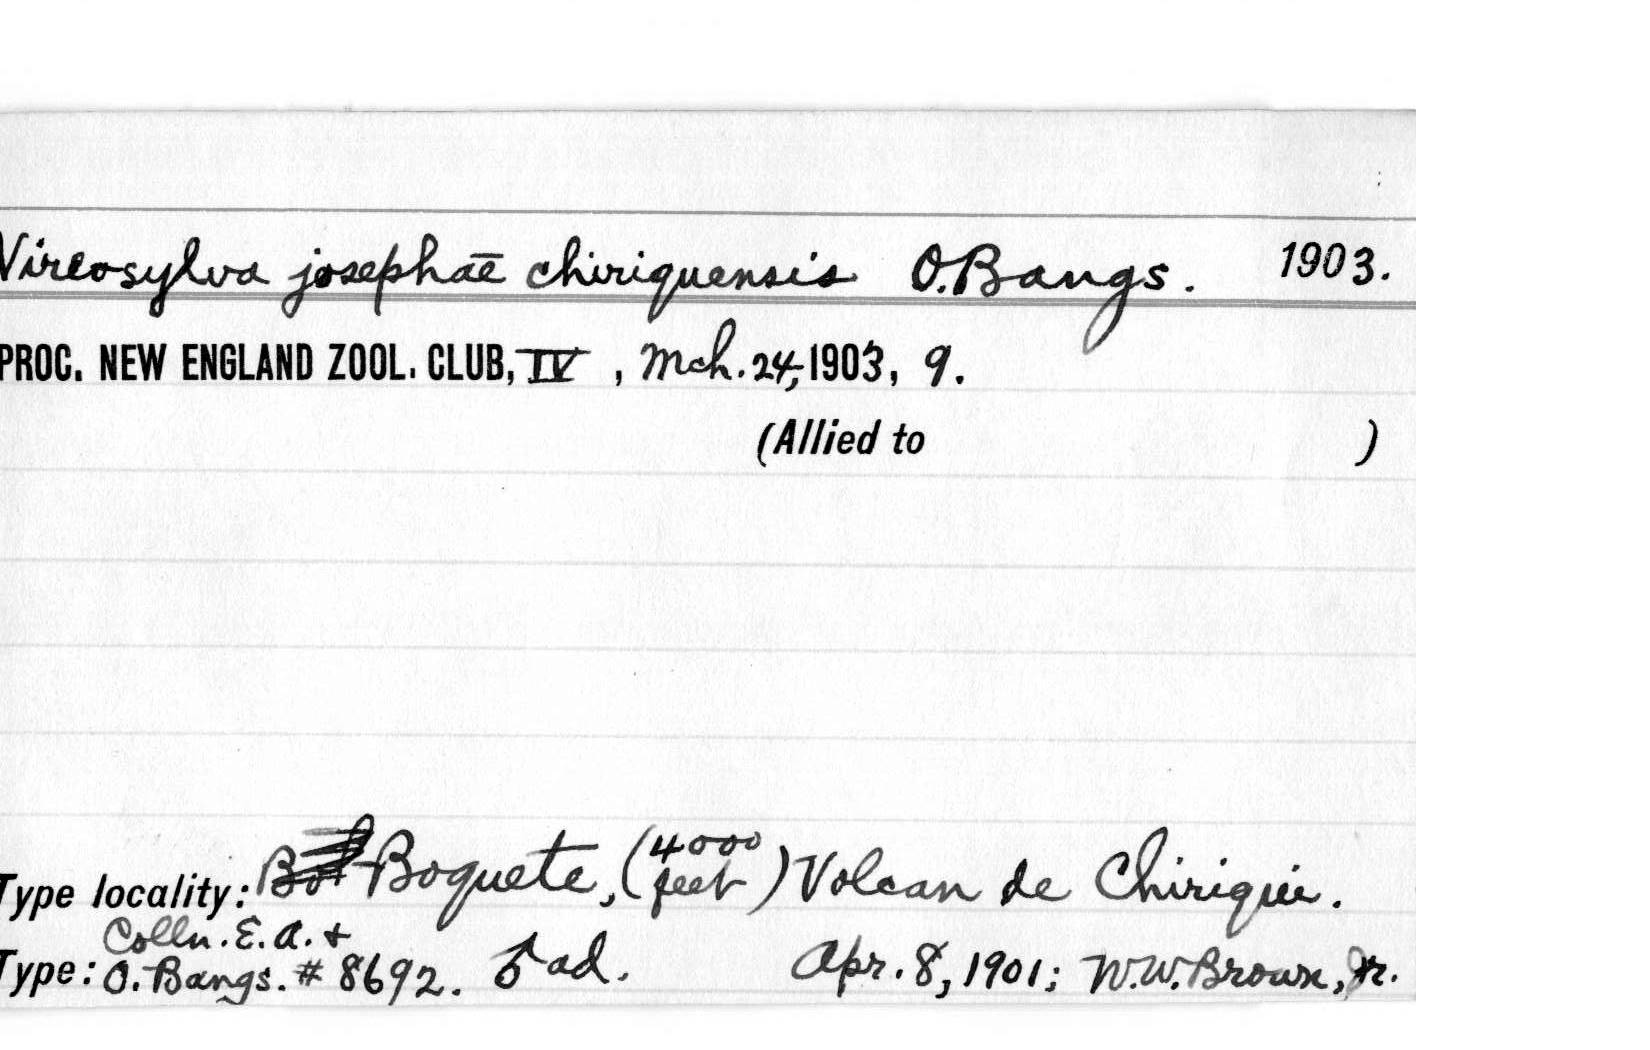 Vireosylva josephaē chiriquensis O.Bangs. 1903.
PROC. NEW ENGLAND ZOOL. CLUB, IV , Mch. 24, 1903, 9.
(Allied to )
Type locality: Boquete, (4000 feet) Volcan de Chiriqui.
Colln. E. A. &
Type: O. Bangs. # 8692. ♂ ad. Apr. 8, 1901; W.W. Brown, Jr.